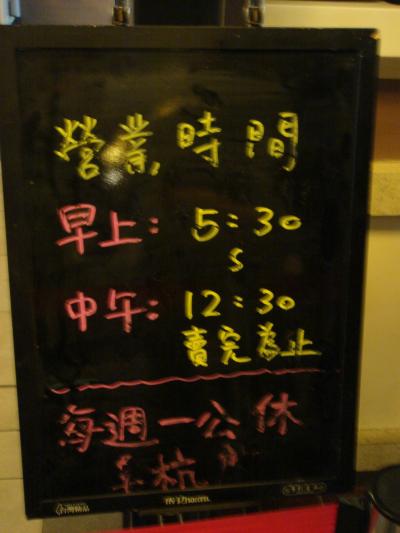 營業時間
早上: 5:30
S
中午: 12:30
賣完為止
每週一公休